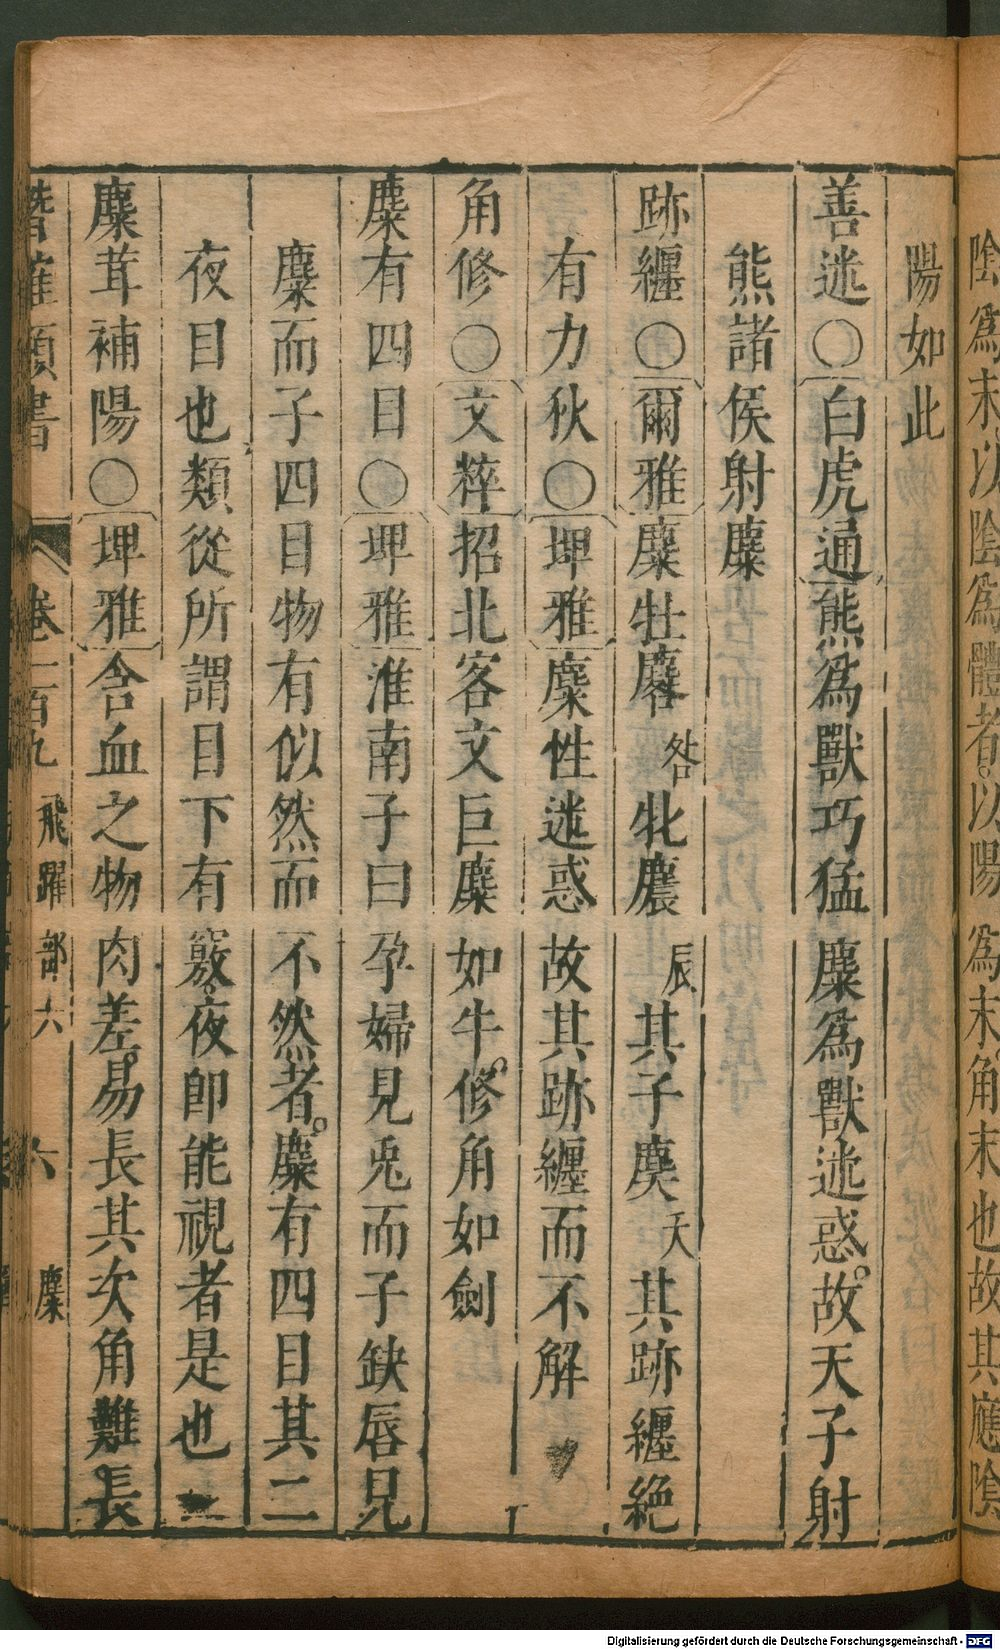 陰爲末以陰爲體者以陽爲末角末也故其應陰
陽如此
善迷○白虎通熊爲獸巧猛麋爲獸迷惑故天子射
熊諸侯射麋
跡纏○爾雅麋牡麔咎牝麎辰其子䴠夭其跡纏絶
有力狄○埤雅麋性迷惑故其跡纏而不解
角修○文粹招北客文巨麋如牛修角如劍
麋有四目○埤雅淮南子曰孕婦見兎而子缺唇見
麋而子四目物有似然而不然者麋有四目其二
夜目也類從所謂目下有竅夜即能視者是也
麋茸補陽○埤雅含血之物肉差易長其次角難長
潛確類書
卷一百九
飛躍部六
六
麋
Digitalisierung gefördert durch die Deutsche Forschungsgemeinschaft - DFG